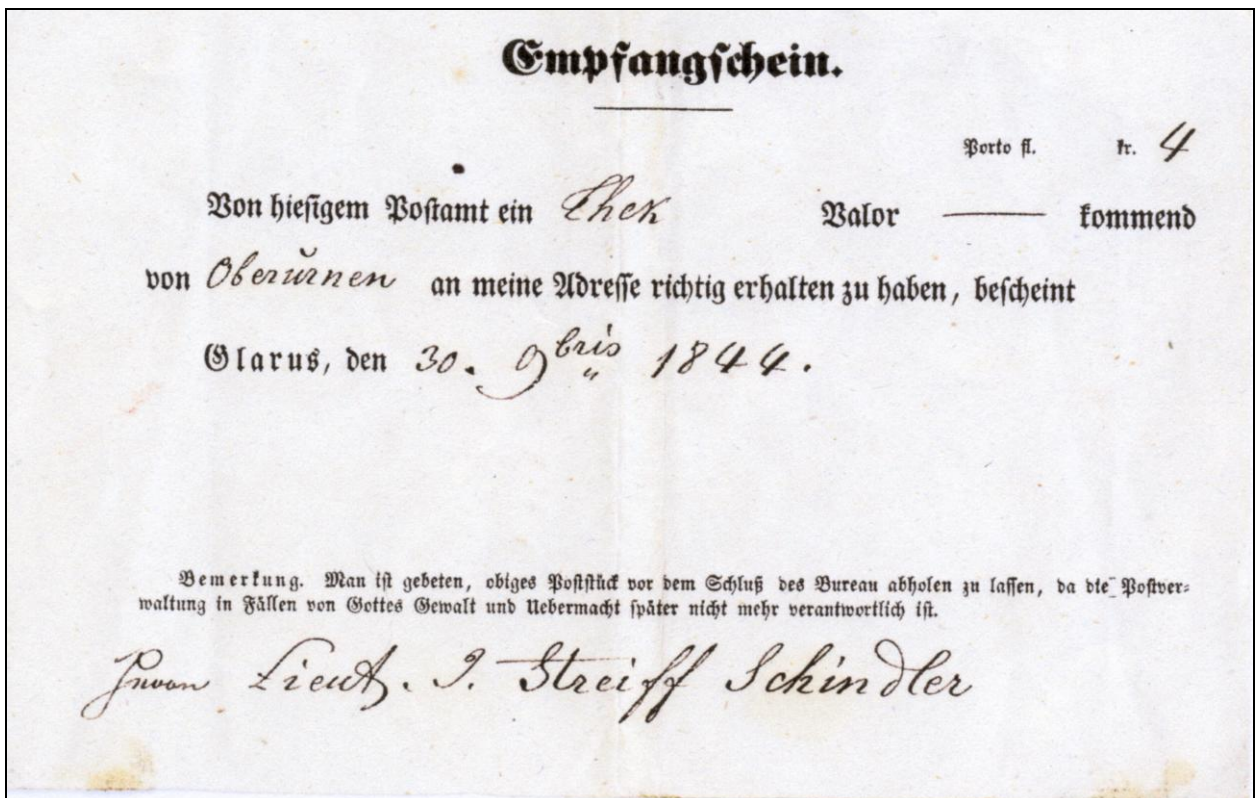 Empfangschein.
Porto fl. kr. 4
Von hiesigem Postamt ein Thek Valor — kommend
von Oberurnen an meine Adresse richtig erhalten zu haben, bescheint
Glarus, den 30. 9bris 1844.
Bemerkung. Man ist gebeten, obiges Poststück vor dem Schluß des Bureau abholen zu lassen, da die Postver-
waltung in Fällen von Gottes Gewalt und Uebermacht später nicht mehr verantwortlich ist.
Herrn Lieut. J. Streiff Schindler